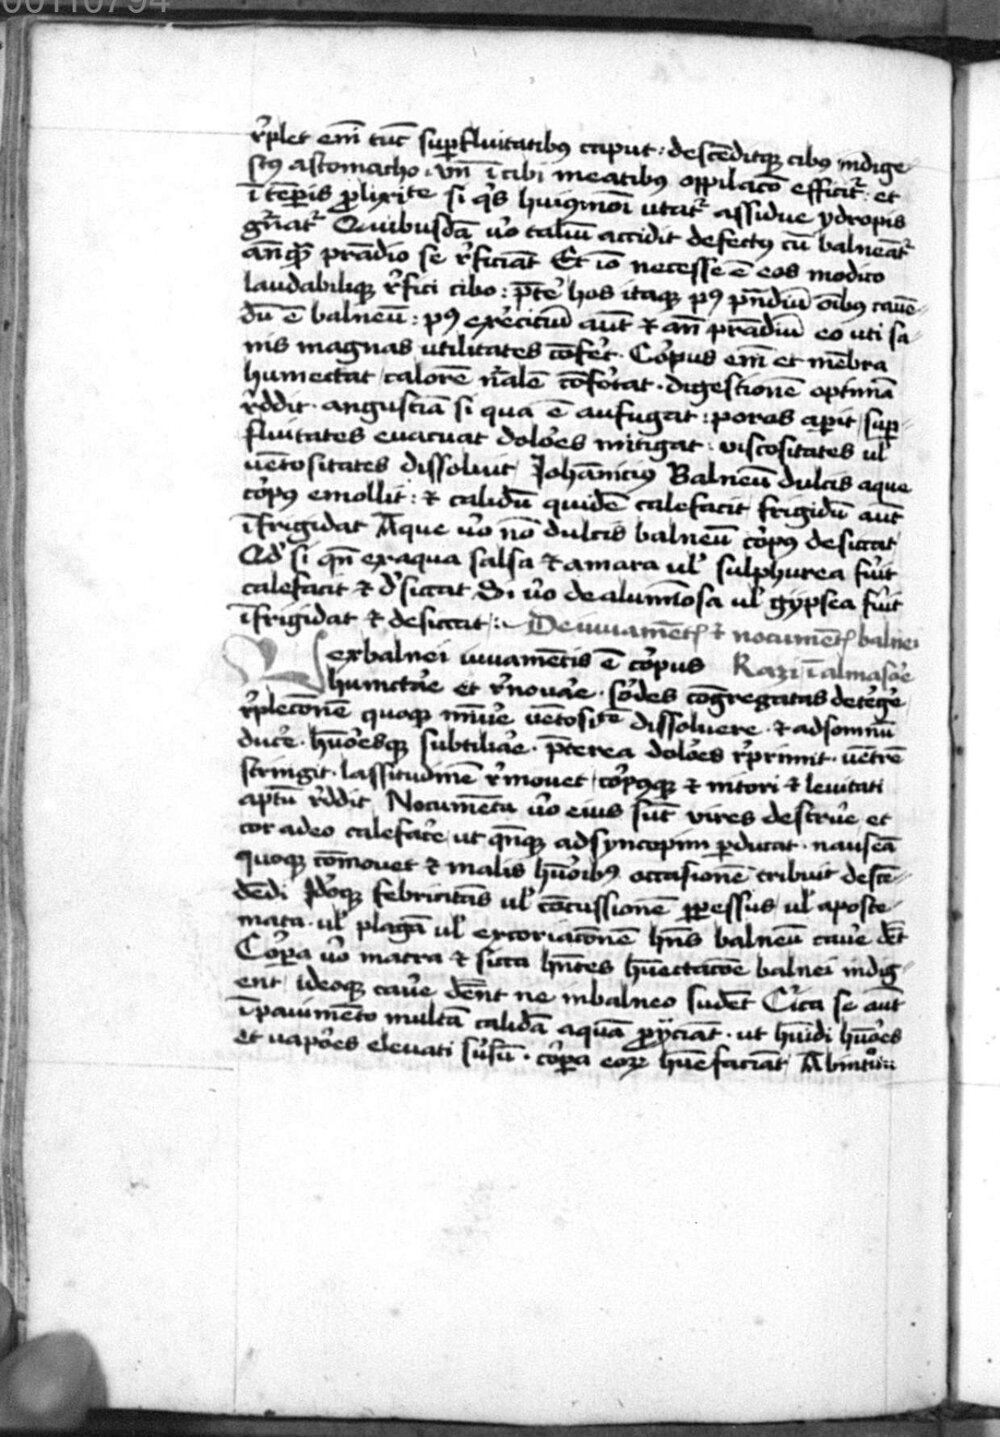 00110794
r̄plet em̄ tūc suꝑfluitatibꝰ caput : descēditqꝫ cibꝰ indige-
stꝰ a stomacho · vn̄ ī cibi meatibꝰ oppilaco᷑ efficit᷑ : et
ī tēꝑis ꝓlixite si qͥs huiꝰmōi utat᷑ assidue ydropis
gn̄at᷑ Quibusdā v̊o taliū accidit defectꝰ cū balneāt᷑
an̄qꝫ prādio se r̄ficiāt Et iō necesse ē eos modico
laudabiliqꝫ r̄fici cibo : p̄te᷑ hos itaqꝫ pꝰ pn̄diū oībꝰ cauē-
dū ē balneū : pꝰ exercitiū aūt ⁊ an̄ prādiū eo uti sa-
nis magnas utilitates cōfert · Corpus em̄ et mēbra
humectat / calorē n̄alē cōfortat · digestionē optimā
r̄ddit · angustiā si qua ē aufugat : poros aꝑit / suꝑ-
fluitates euacuat dolores mitigat · viscositates ul̄
uētositates dissoluit / Johānicius Balneū dulcis aque
corpꝰ emollit : ⁊ calidū quidē calefacit frigidū aūt
īfrigidat Aque v̊o nō dulcis balneū corpꝰ desiccat
Qd̄ si qn̄ ex aqua salsa ⁊ amara ul̄ sulphurea fūit
calefacit ⁊ d̄siccat Si v̊o de alumīosa ul̄ gypsea fūit
īfrigidat ⁊ desiccat :· De iuuamēt ⁊ nocumēt balnei
ex balnei iuuamētis ē corpus Razi ī almasore
humctāe et r̄nouāe · sordes cōgregatas detergē
r̄plecōnē quoqꝫ mīuē uētosite dissoluere · ⁊ ad somnū
ducē · hūoresqꝫ subtiliāe · p̄terea dolores r̄primit · uētrē
stringit · lassitudinē r̄mouet / corpꝰqꝫ ⁊ nitori ⁊ leuitati
aptū r̄ddit / Nocumēta v̊o eius sūt vires destruē et
cor adeo calefacē ut qn̄qꝫ ad syncopim ꝑducat · nauseā
quoqꝫ cōmouet ⁊ malis hūoribꝰ occasionē tribuit descē-
dēdi Idoqꝫ febricitās ul̄ cōcussionē ꝑpessus / ul̄ aposte-
mata · ul̄ plagā ul̄ excoriacōnē hn̄s balneū cauē dēt
Corpa v̊o macra ⁊ sicca hn̄tes hūectacōe balnei indig-
ent / ideoqꝫ cauē dēnt ne in balneo sudēt Circa se aūt
ī pauimēto multā calidā aquā ꝓyciat · ut hūidi hūores
et uapores eleuati sursū · corpa eoꝝ hūefaciāt / Ab intro::